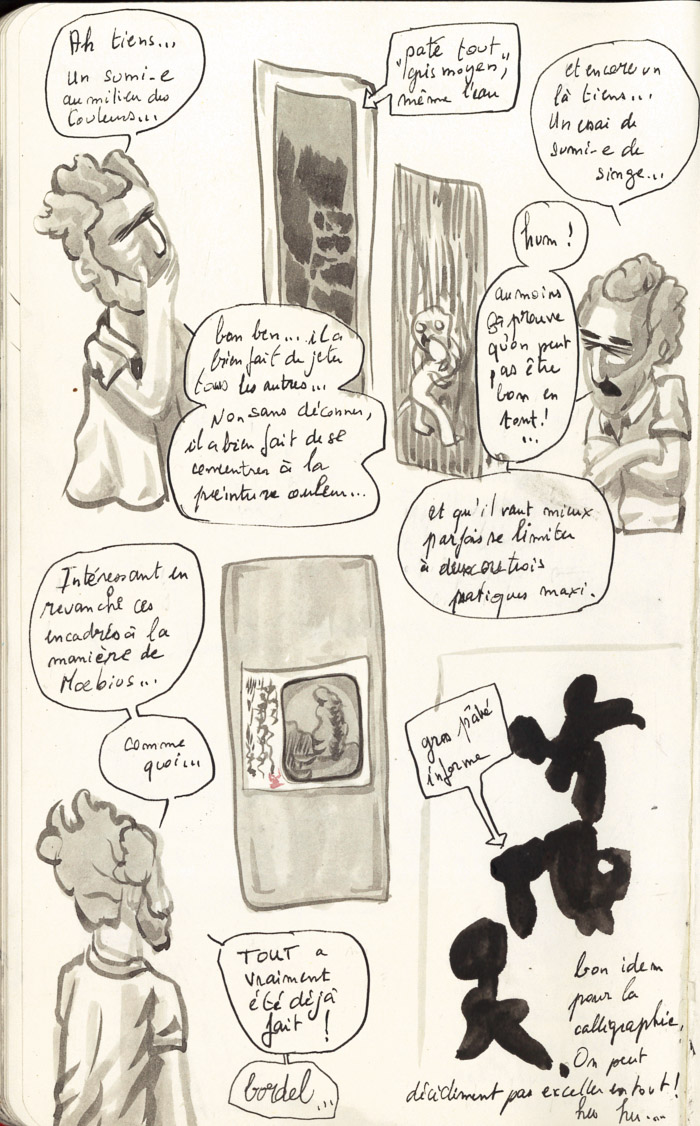 Ah tiens...
un sumi-e
au milieu des
couleurs...
"paté tout
gris moyen",
même l'eau
et encore un
là tiens...
Un essai de
sumi-e de
singe...
hum !
au moins
ça prouve
qu'on peut
pas être
bon en
tout !
...
bon ben... il a
bien fait de jeter
tous les autres...
Non sans déconner,
il a bien fait de se
concentrer à la
peinture couleur...
et qu'il vaut mieux
parfois se limiter
à deux ou trois
pratiques maxi.
Intéressant en
revanche ces
encadrés à la
manière de
Moebius...
comme
quoi...
gros pâté
informe
TOUT a
vraiment
été déjà
fait !
bordel...
bon idem
pour la
calligraphie.
On peut
décidément pas exceller en tout !